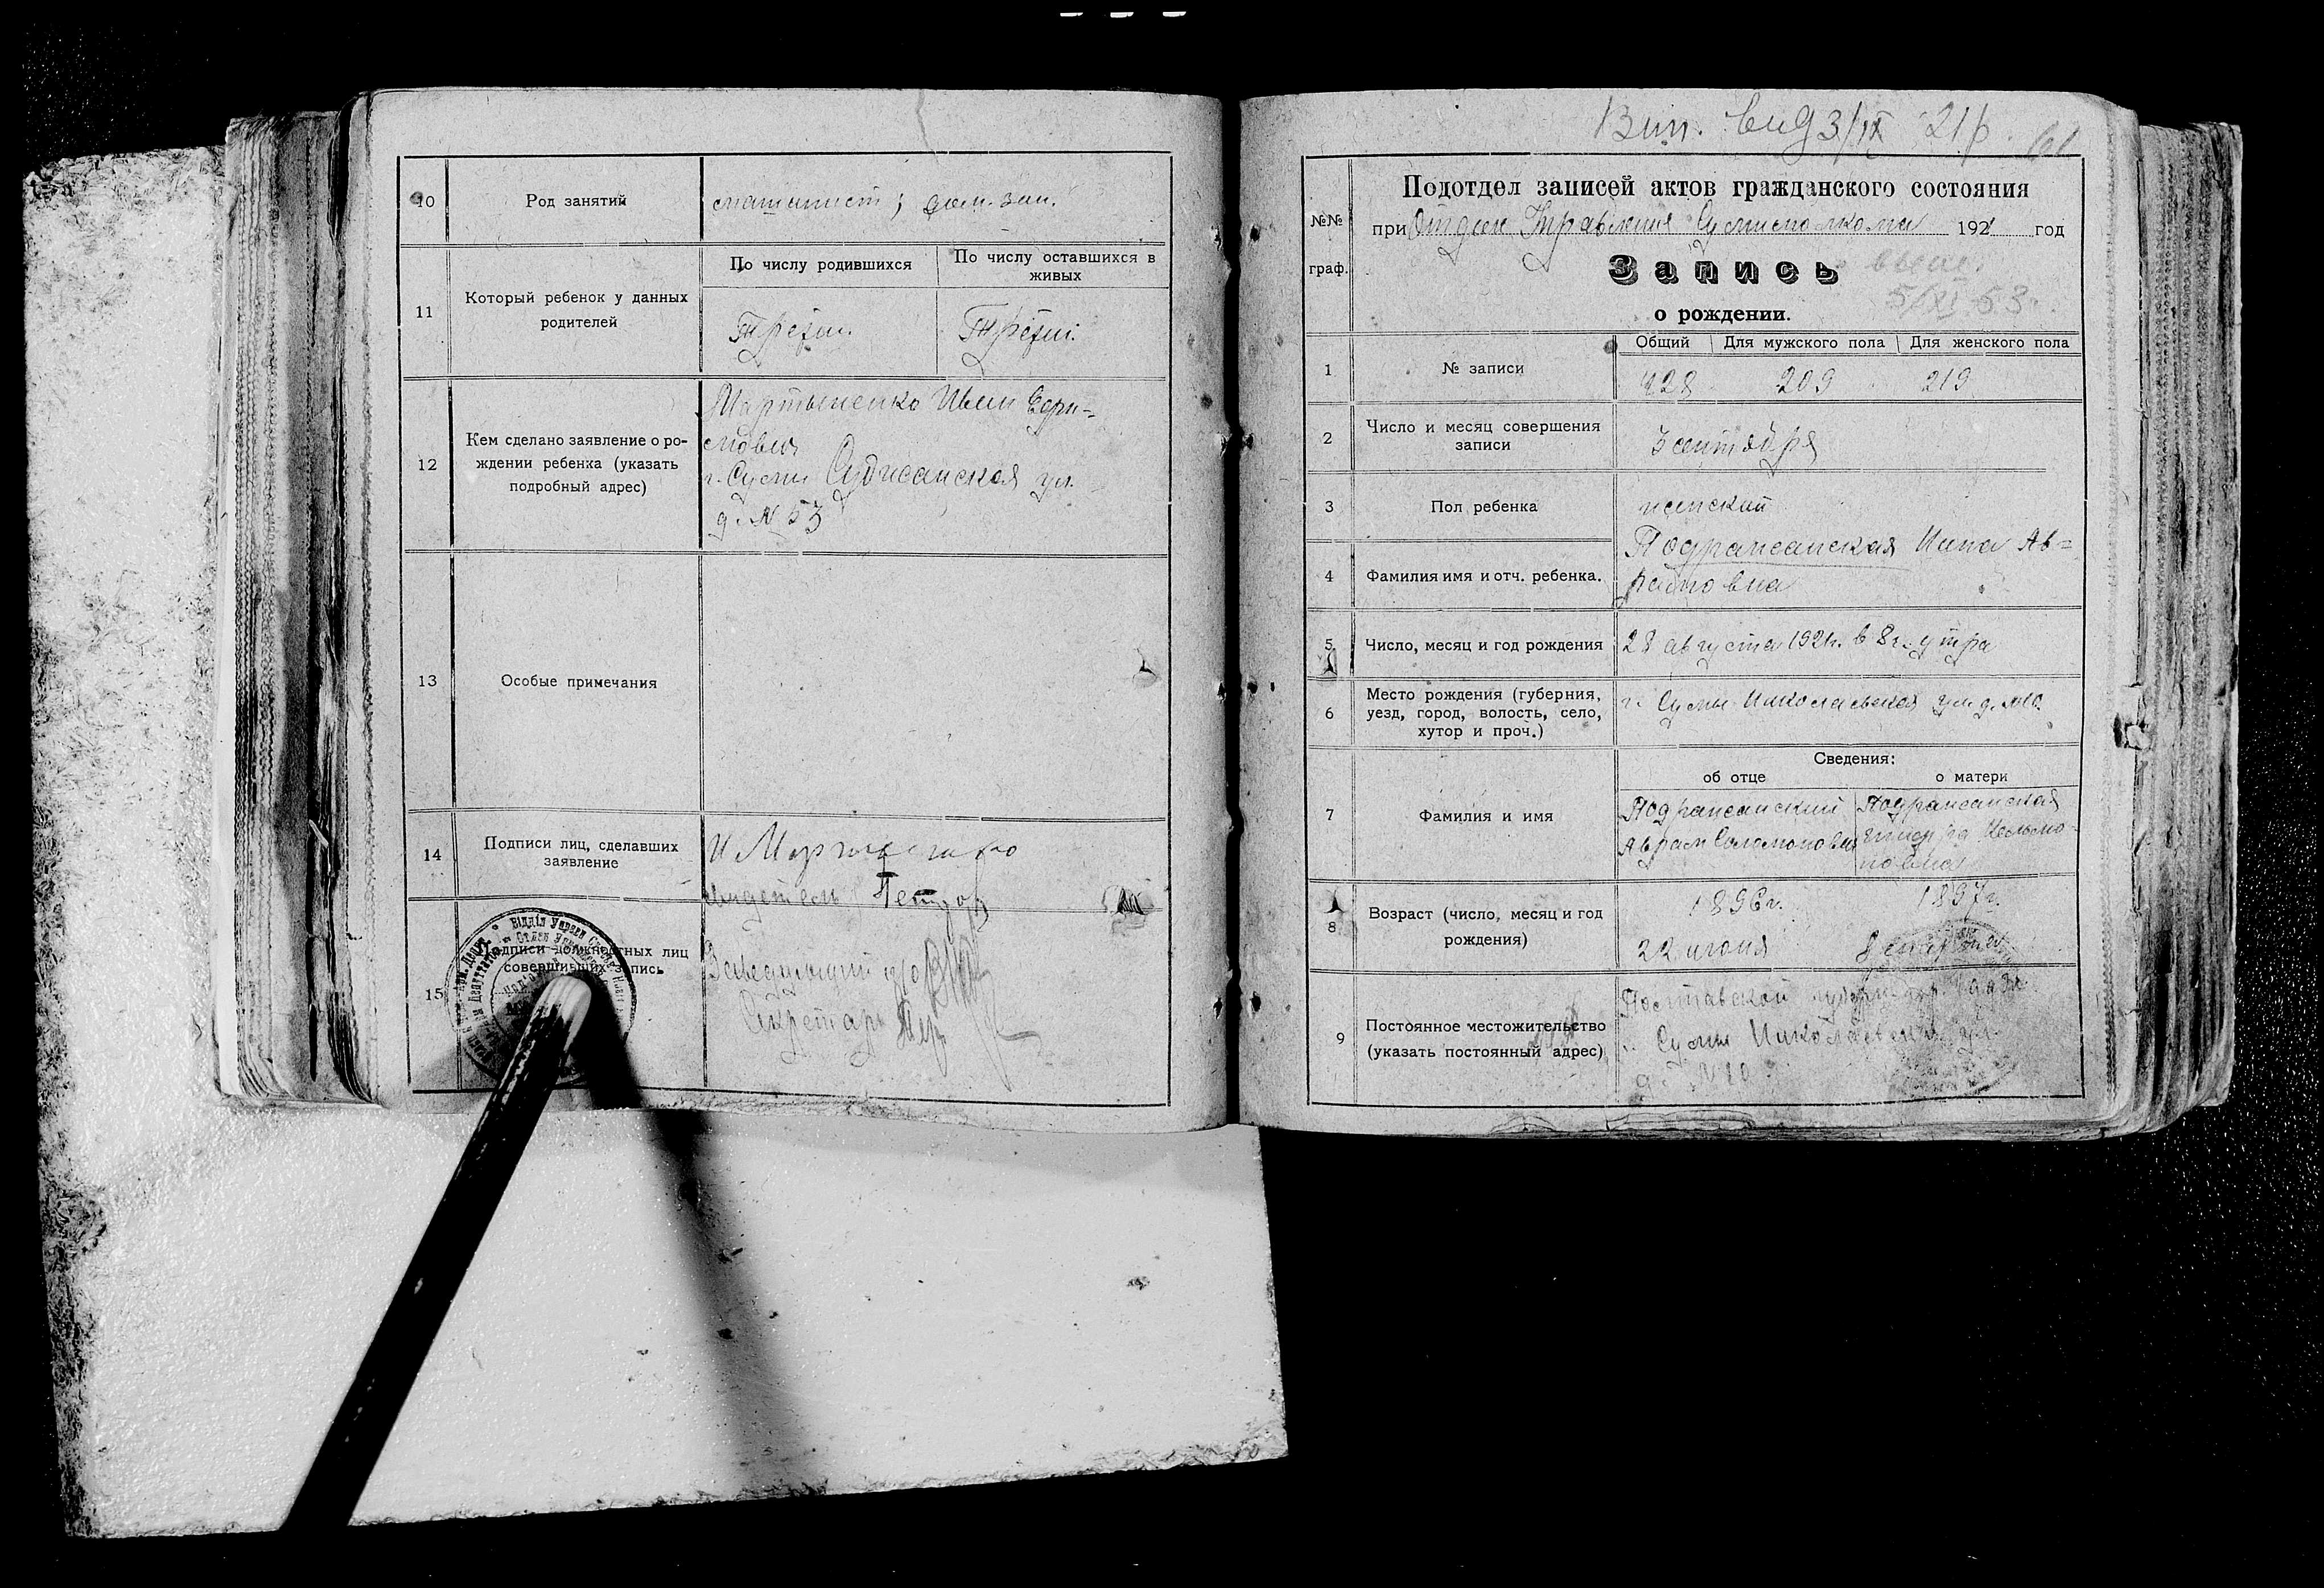 10
Род занятий
статистик; дом. зан.
11
Который ребенок у данных
родителей
По числу родившихся
По числу оставшихся в
живых
Третий.
Третий.
12
Кем сделано заявление о ро-
ждении ребенка (указать
подробный адрес)
Мартыненко Иван
г. Сумы Суджанская ул.
д. № 53
13
Особые примечания
14
Подписи лиц, сделавших
заявление
И Мартыненко
свидетель Петров
15
Подписи должностных лиц
совершивших запись
Заведующий
Секретарь
Вип. вид 3/IX 21р.
№№
граф.
Подотдел записей актов гражданского состояния
при Отделе Управления Сумисполкома 1921 год
Запись
5/XI 53г.
о рождении.
1
№ записи
Общий
Для мужского пола
Для женского пола
428
209
219
2
Число и месяц совершения
записи
3 сентября
3
Пол ребенка
женский
4
Фамилия имя и отч. ребенка.
Подражанская Нина Ав-
рамовна
5
Число, месяц и год рождения
28 августа 1921г. в 8 ч. утра
6
Место рождения (губерния,
уезд, город, волость, село,
хутор и проч.)
г. Сумы Николаевская ул. д. №10
7
Фамилия и имя
Сведения:
об отце
о матери
Подражанский
Аврам Соломонович
Подражанская
8
Возраст (число, месяц и год
рождения)
1896г.
22 июня
1897г.
9
Постоянное местожительство
(указать постоянный адрес)
Полтавской губерн.
г. Сумы Николаевская ул.
д. №10